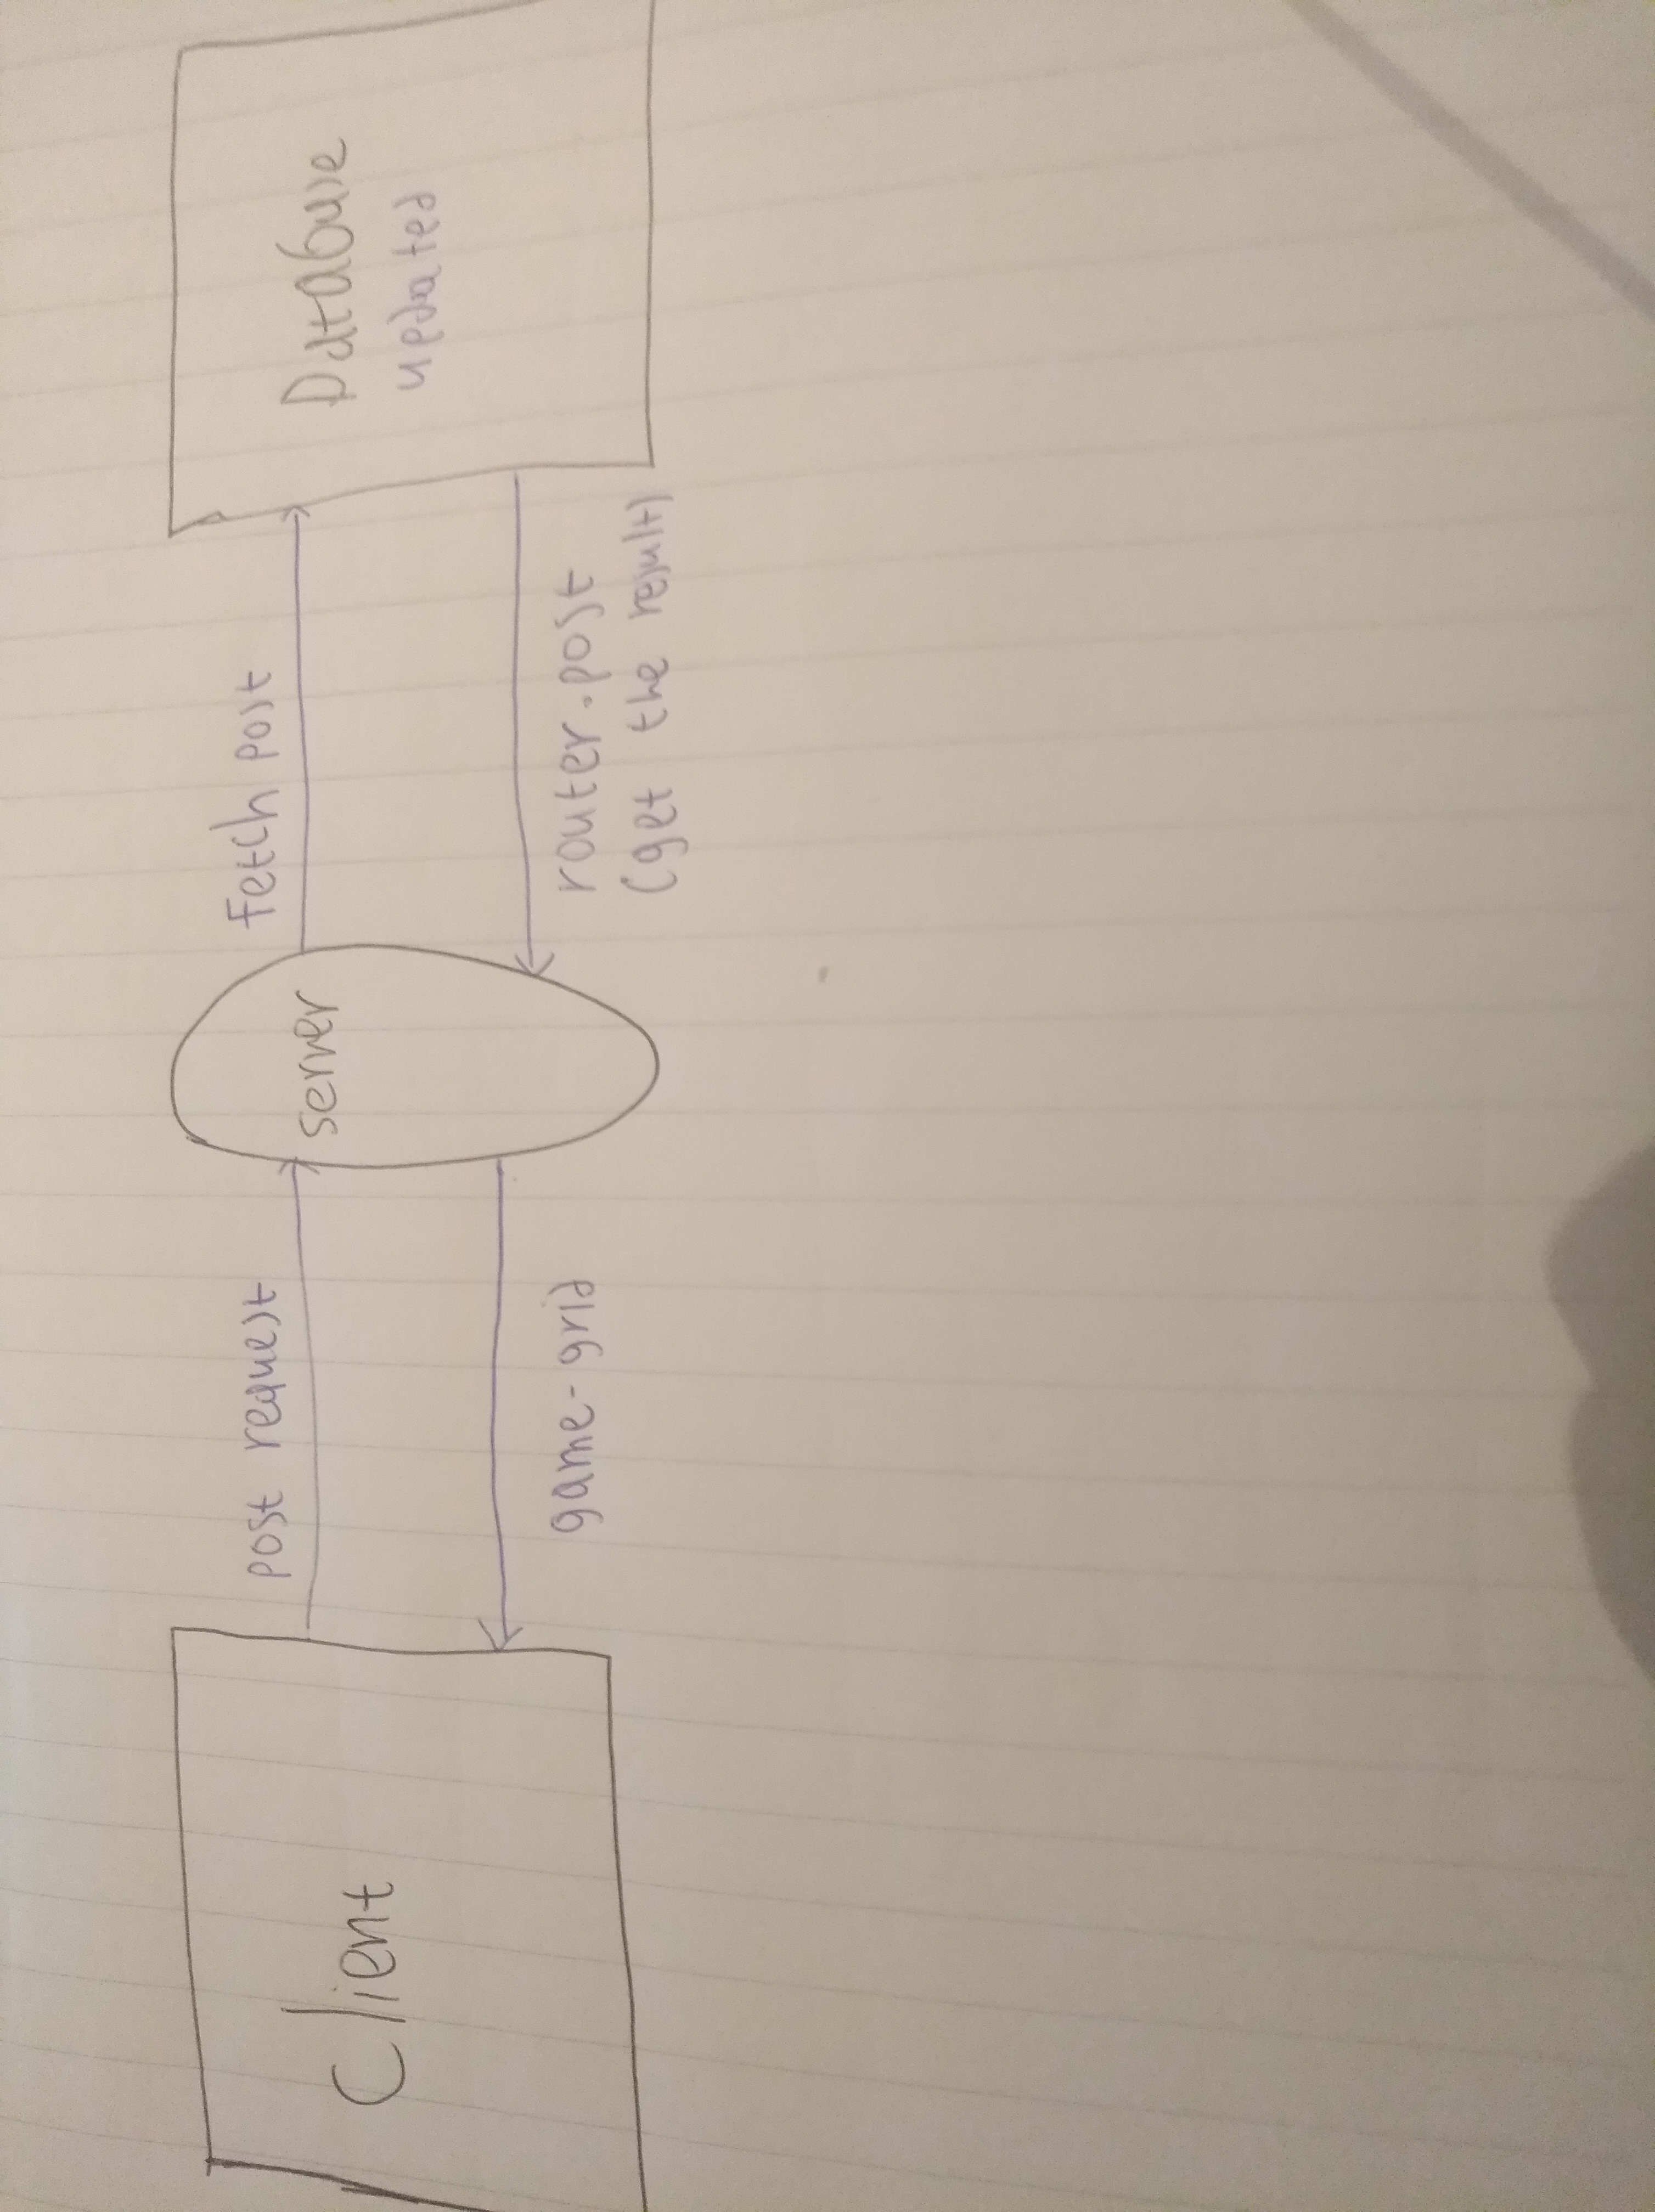 Client
post request
game-grid
server
Fetch post
router.post
(get the result)
Database
updated